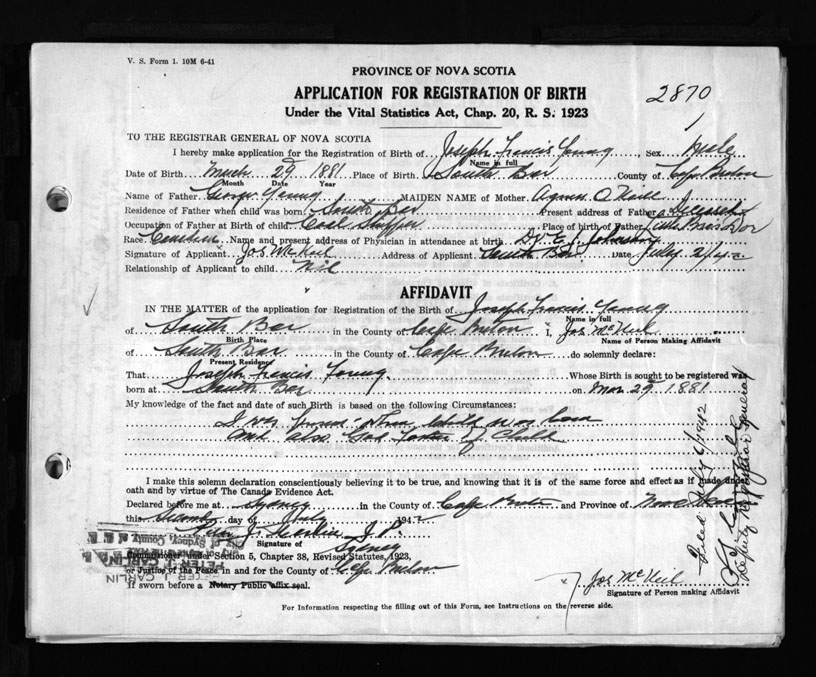 V. S. Form 1. 10M 6-41
PROVINCE OF NOVA SCOTIA
APPLICATION FOR REGISTRATION OF BIRTH
2870
Under the Vital Statistics Act, Chap. 20, R. S. 1923
1
TO THE REGISTRAR GENERAL OF NOVA SCOTIA
I hereby make application for the Registration of Birth of Joseph Francis Young, Sex Male
Name in full
Date of Birth March 29 1881 Place of Birth South Bar County of Cape Breton
Month Date Year
Name of Father George Young MAIDEN NAME of Mother Agnes O'Neill
Residence of Father when child was born South Bar Present address of Father Deceased
Occupation of Father at Birth of child Coal Place of birth of Father Little Bras Dor
Race Name and present address of Physician in attendance at birth Dr. E. J. Johnson
Signature of Applicant Jos McNeil Address of Applicant South Bar Date July 2/42
Relationship of Applicant to child Nil
AFFIDAVIT
IN THE MATTER of the application for Registration of the Birth of Joseph Francis Young
Name in full
of South Bar in the County of Cape Breton I, Jos McNeil
Birth Place Name of Person Making Affidavit
of South Bar in the County of Cape Breton do solemnly declare:
Present Residence
That Joseph Francis Young Whose Birth is sought to be registered was
born at South Bar on Mar 29 1881
My knowledge of the fact and date of such Birth is based on the following Circumstances:
I was when child was born
and also God of Child
I make this solemn declaration conscientiously believing it to be true, and knowing that it is of the same force and effect as if made under
oath and by virtue of The Canada Evidence Act.
Declared before me at Sydney in the County of Cape Breton and Province of Nova Scotia
this day of July 1942
Peter J. Carlin J. P.
Signature of
Sydney
Commissioner under Section 5, Chapter 38, Revised Statutes, 1923,
or Justice of the Peace in and for the County of Cape Breton
If sworn before a Notary Public affix seal.
Jos McNeil
Signature of Person making Affidavit
For Information respecting the filling out of this Form, see Instructions on the reverse side.
PETER J. CARLIN
Filed July 6/1942
Deputy Registrar General